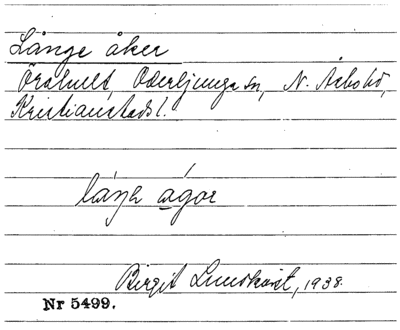 Långe åker
Örahult, Oderljunga sn, N. Åsbo hd,
Kristianstads l.
låŋa ågor
Birgit Lundkvist, 1938.
Nr 5499.